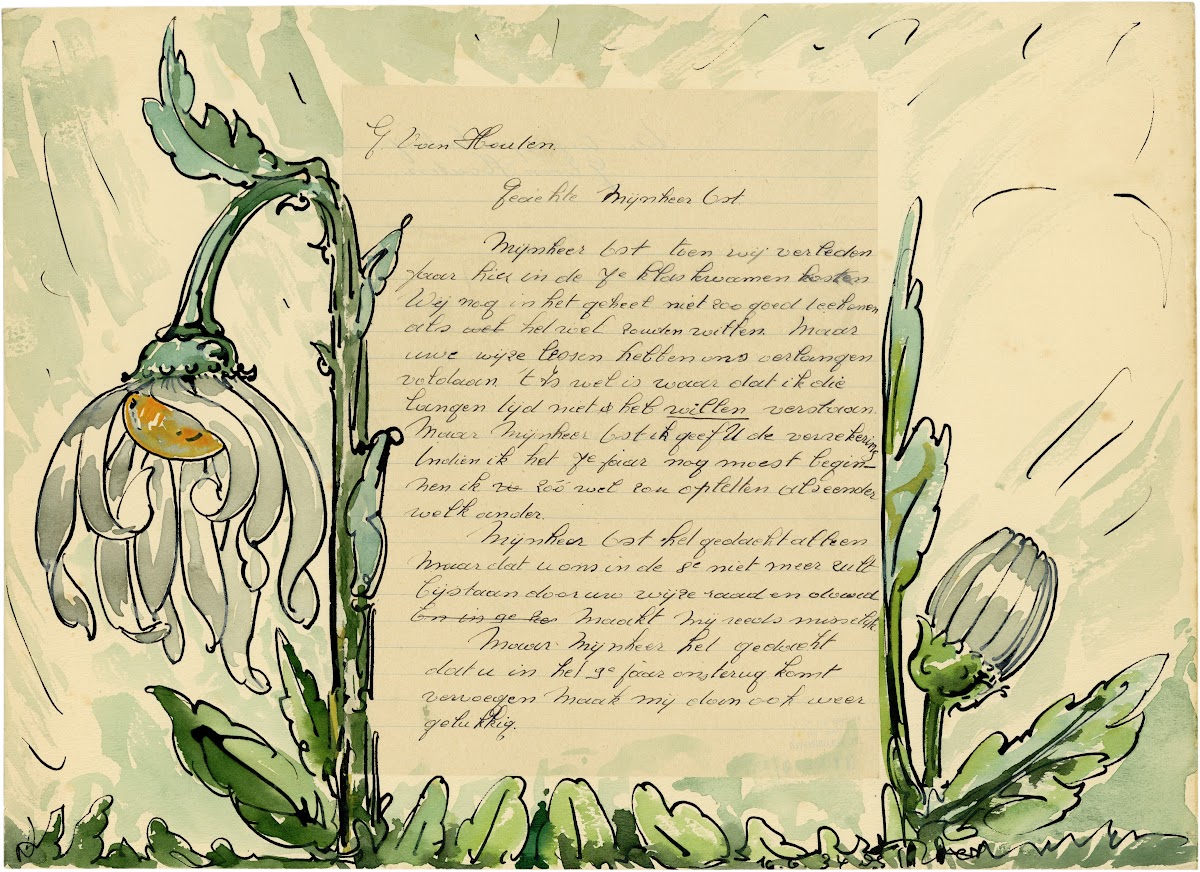 G. Van Houten.
Geachte Mijnheer Ost.
Mijnheer Ost toen wij verleden
jaar hier in de 7e klas kwamen kosten
Wij nog in het geheel niet zoo goed teekenen
als wel het wel zouden willen. Maar
uwe wijze lessen hebben ons verlangen
voldaan 't Is wel is waar dat ik die
langen tijd niet heb willen verstaan.
Maar Mijnheer Ost ik geef U de verzekering
Indien ik het 7e jaar nog moest begin-
nen ik zóó wel zou opletten als eender
welk ander.
Mijnheer Ost het gedacht alleen
Maar dat u ons in de 8e niet meer zult
bijstaan door uw wijze raad en
En in ge Maakt Mij reeds misselijk
Maar Mijnheer het gedacht
dat u in het 9e jaar ons terug komt
vervoegen Maak mij dan ook weer
gelukkig.
16. 6. 34